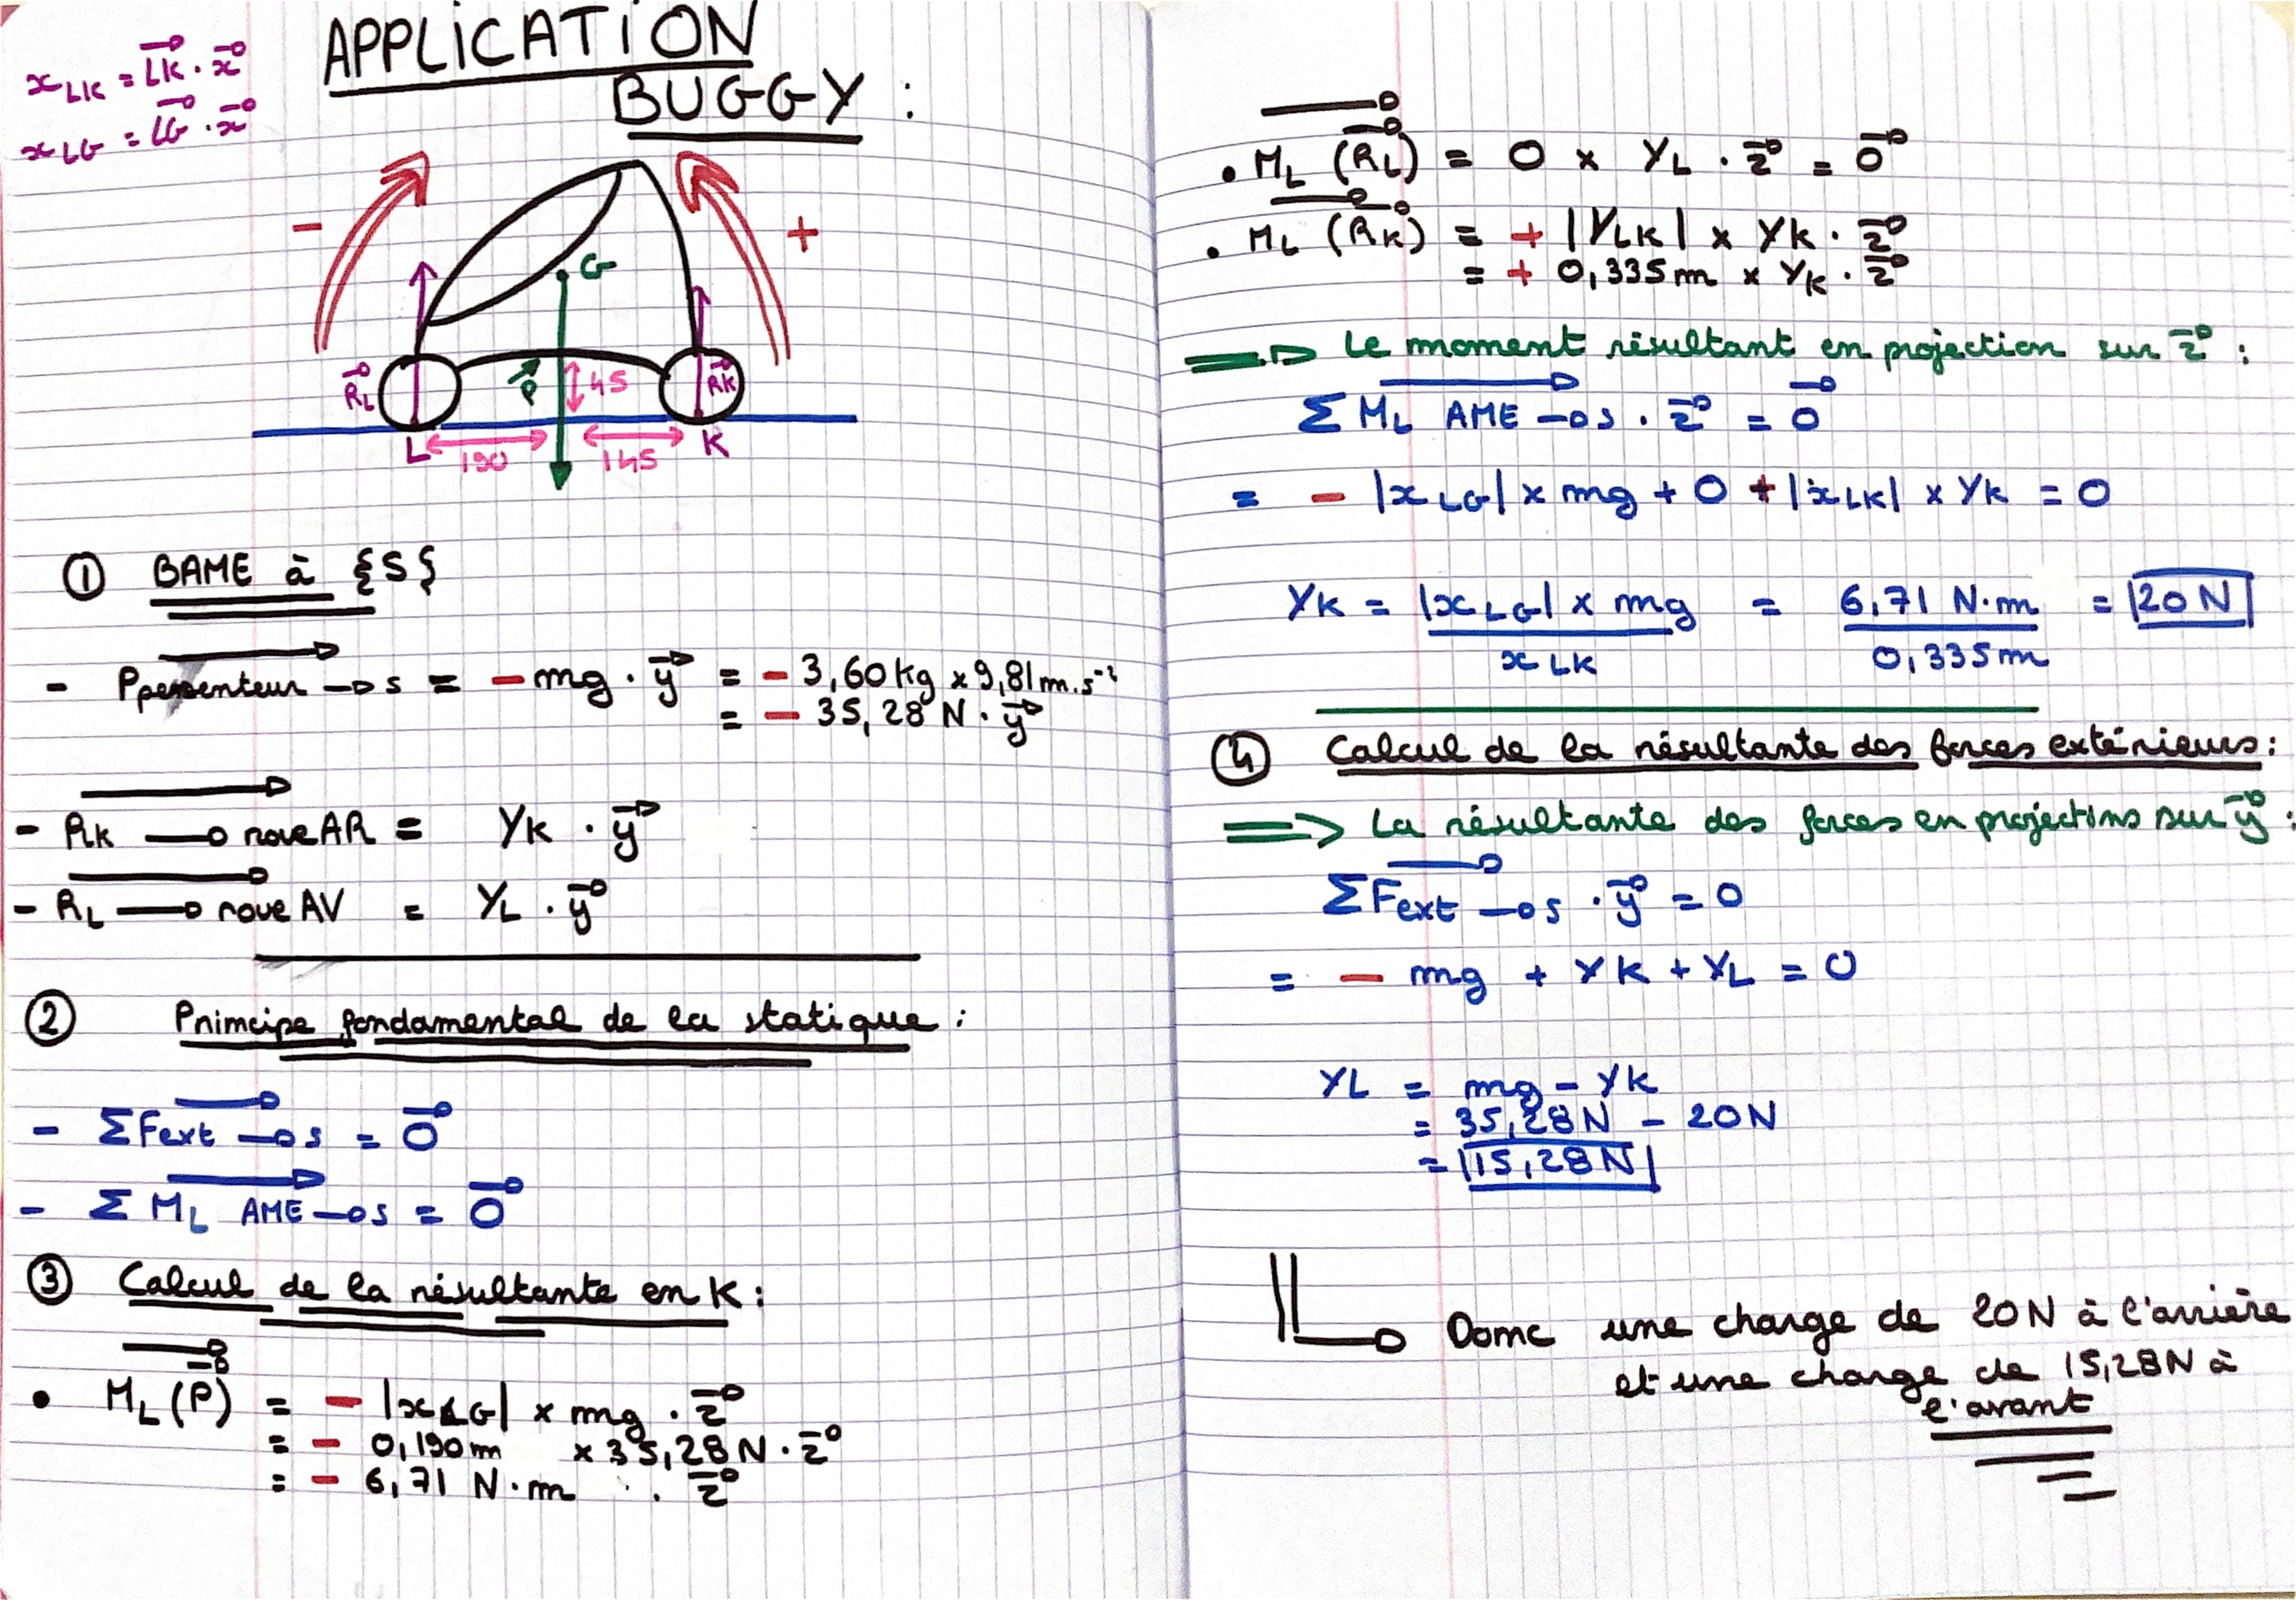 APPLICATION
BUGGY :
x LK = LK . x
x LG = LG . x
-
+
G
R L
P
45
R K
L
190
145
K
① BAME à {S}
- P pesenteur → s = - mg . y = - 3,60 kg x 9,81 m.s⁻²
= - 35,28 N . y
- R K → roue AR = Y K . y
- R L → roue AV = Y L . y
② Principe fondamental de la statique :
- Σ F ext → s = 0
- Σ M L AME → s = 0
③ Calcul de la résultante en K :
• M L (P) = - |x LG| x mg . z
= - 0,190 m x 35,28 N . z
= - 6,71 N.m . z
• M L (R L) = 0 x Y L . z = 0
• M L (R K) = + |Y LK| x Y K . z
= + 0,335 m x Y K . z
⇒ Le moment résultant en projection sur z :
Σ M L AME → s . z = 0
= - |x LG| x mg + 0 + |x LK| x Y K = 0
Y K = |x LG| x mg = 6,71 N.m = 20 N
x LK 0,335 m
④ Calcul de la résultante des forces extérieurs :
⇒ La résultante des forces en projections sur y :
Σ F ext → s . y = 0
= - mg + Y K + Y L = 0
Y L = mg - Y K
= 35,28 N - 20 N
= 15,28 N
Donc une charge de 20 N à l'arrière
et une charge de 15,28 N à
l'avant